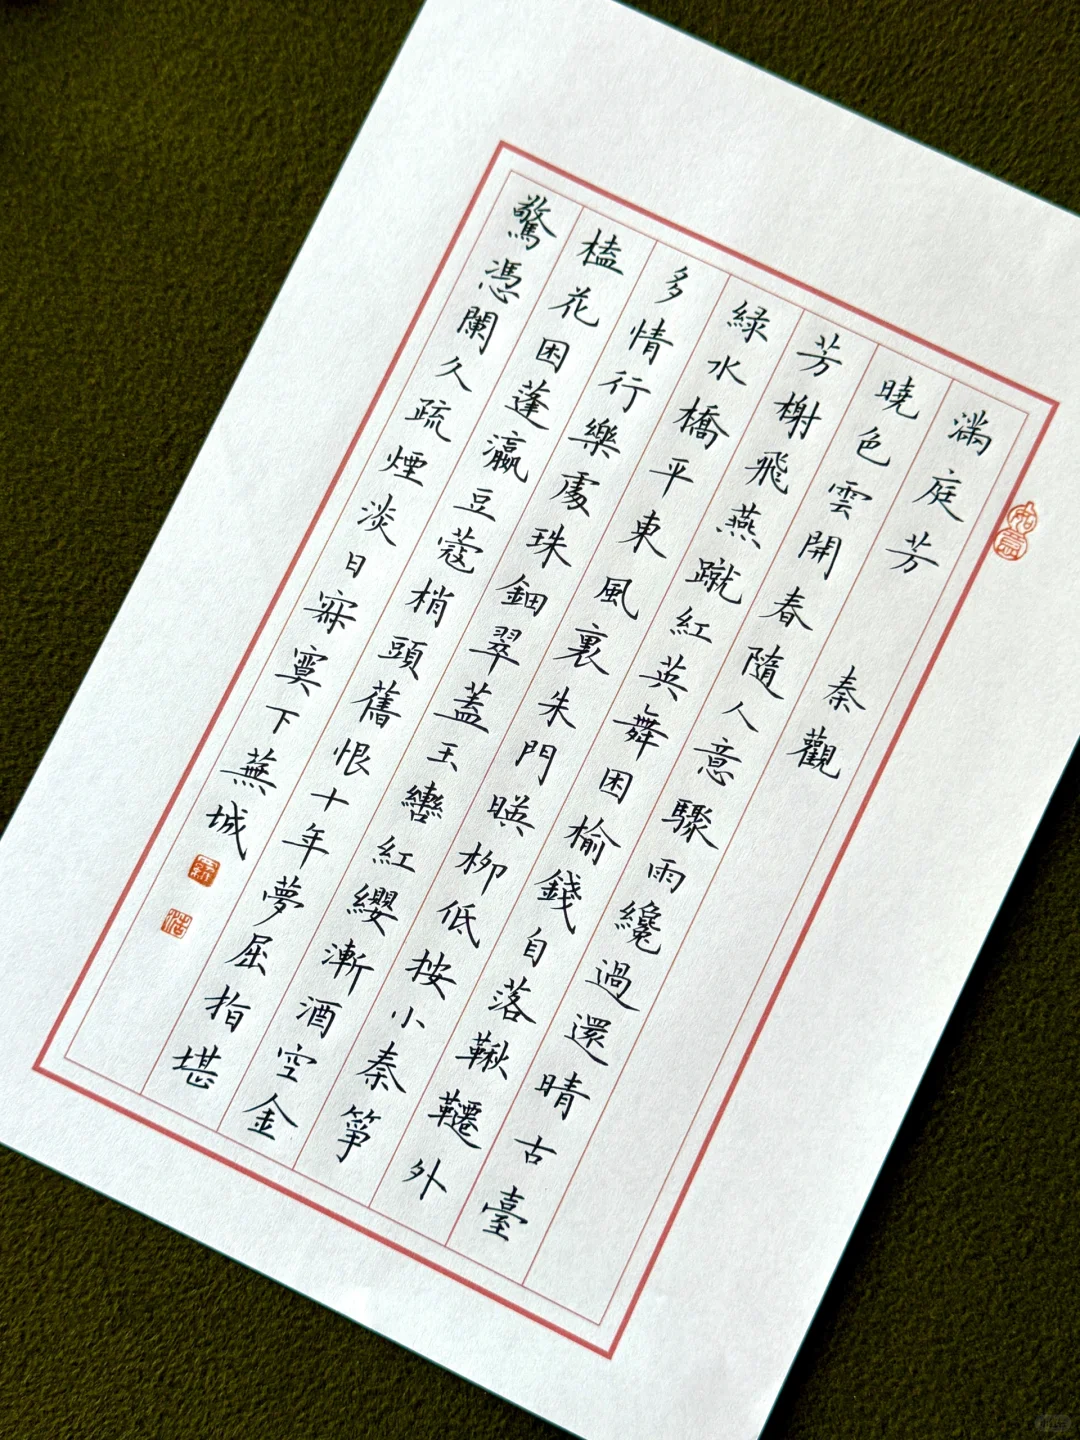 滿庭芳 秦觀
曉色雲開春隨人意驟雨纔過還晴古臺
芳榭飛燕蹴紅英舞困榆錢自落鞦韆外
緑水橋平東風裏朱門暎柳低按小秦箏
多情行樂處珠鈿翠蓋玉轡紅纓漸酒空金
榼花困蓬瀛豆蔻梢頭舊恨十年夢屈指堪
驚憑闌久疏煙淡日寂寞下蕪城
如意